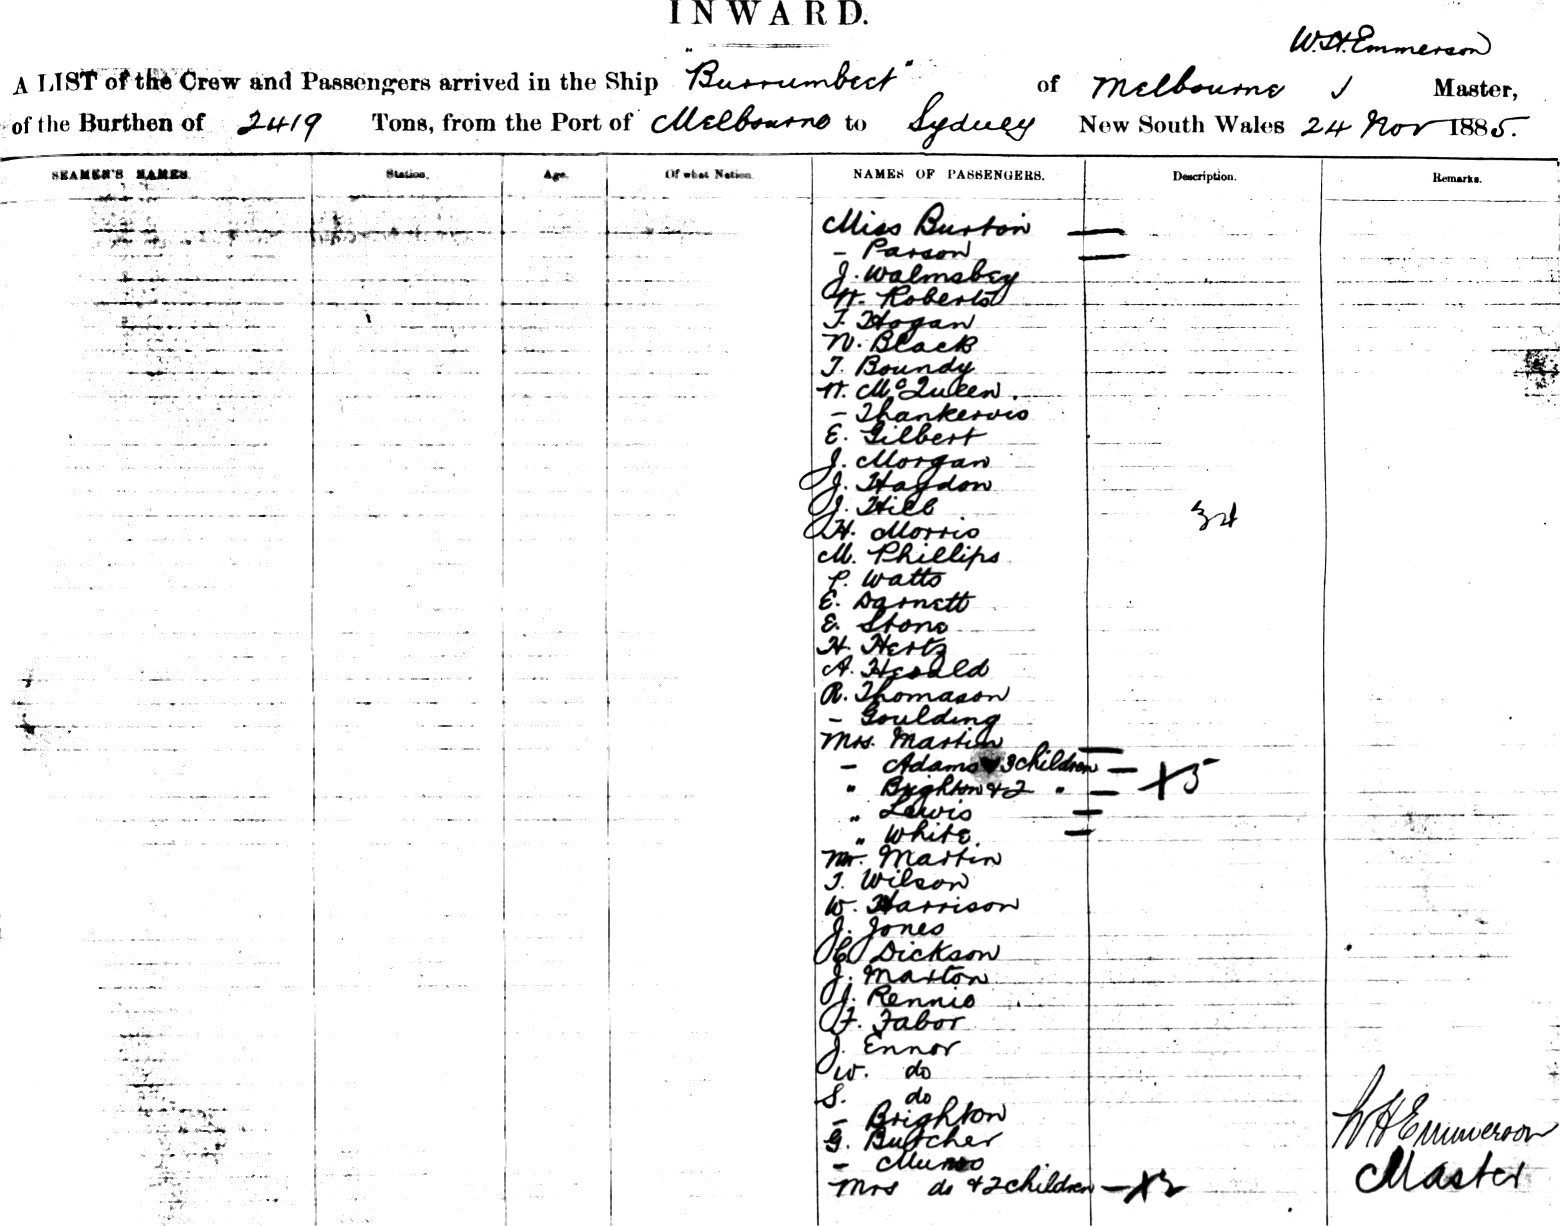 INWARD.
W. H. Emmerson
A LIST of the Crew and Passengers arrived in the Ship "Burrumbeet" of Melbourne Master,
of the Burthen of 2419 Tons, from the Port of Melbourne to Sydney New South Wales 24 Nov 1885.
SEAMEN'S NAMES. Station. Age. Of what Nation. NAMES OF PASSENGERS. Description. Remarks.
Miss Burton —
– Parson —
J. Walmsbey
W. Roberts
T. Hogan
N. Black
T. Boundy
W. McQueen.
– Thankervis
E. Gilbert
J. Morgan
J. Haydon
J. Hill
34
H. Morris
M. Phillips
P. Watts
E. Darnett
E. Stone
H. Hertz
A. Herald
R. Thomason
– Goulding
Mrs. Martin —
– Adams 3 children —
" Brighton & 2 " — +5
" Lewis —
" White. —
Mr. Martin
T. Wilson
W. Harrison
J. Jones
C. Dickson
J. Marton
J. Rennie
F. Fabor
J. Ennor
W. do
S. do
– Brighton
G. Butcher
– Munro
Mrs do & 2 children — +2
W H Emmerson
Master